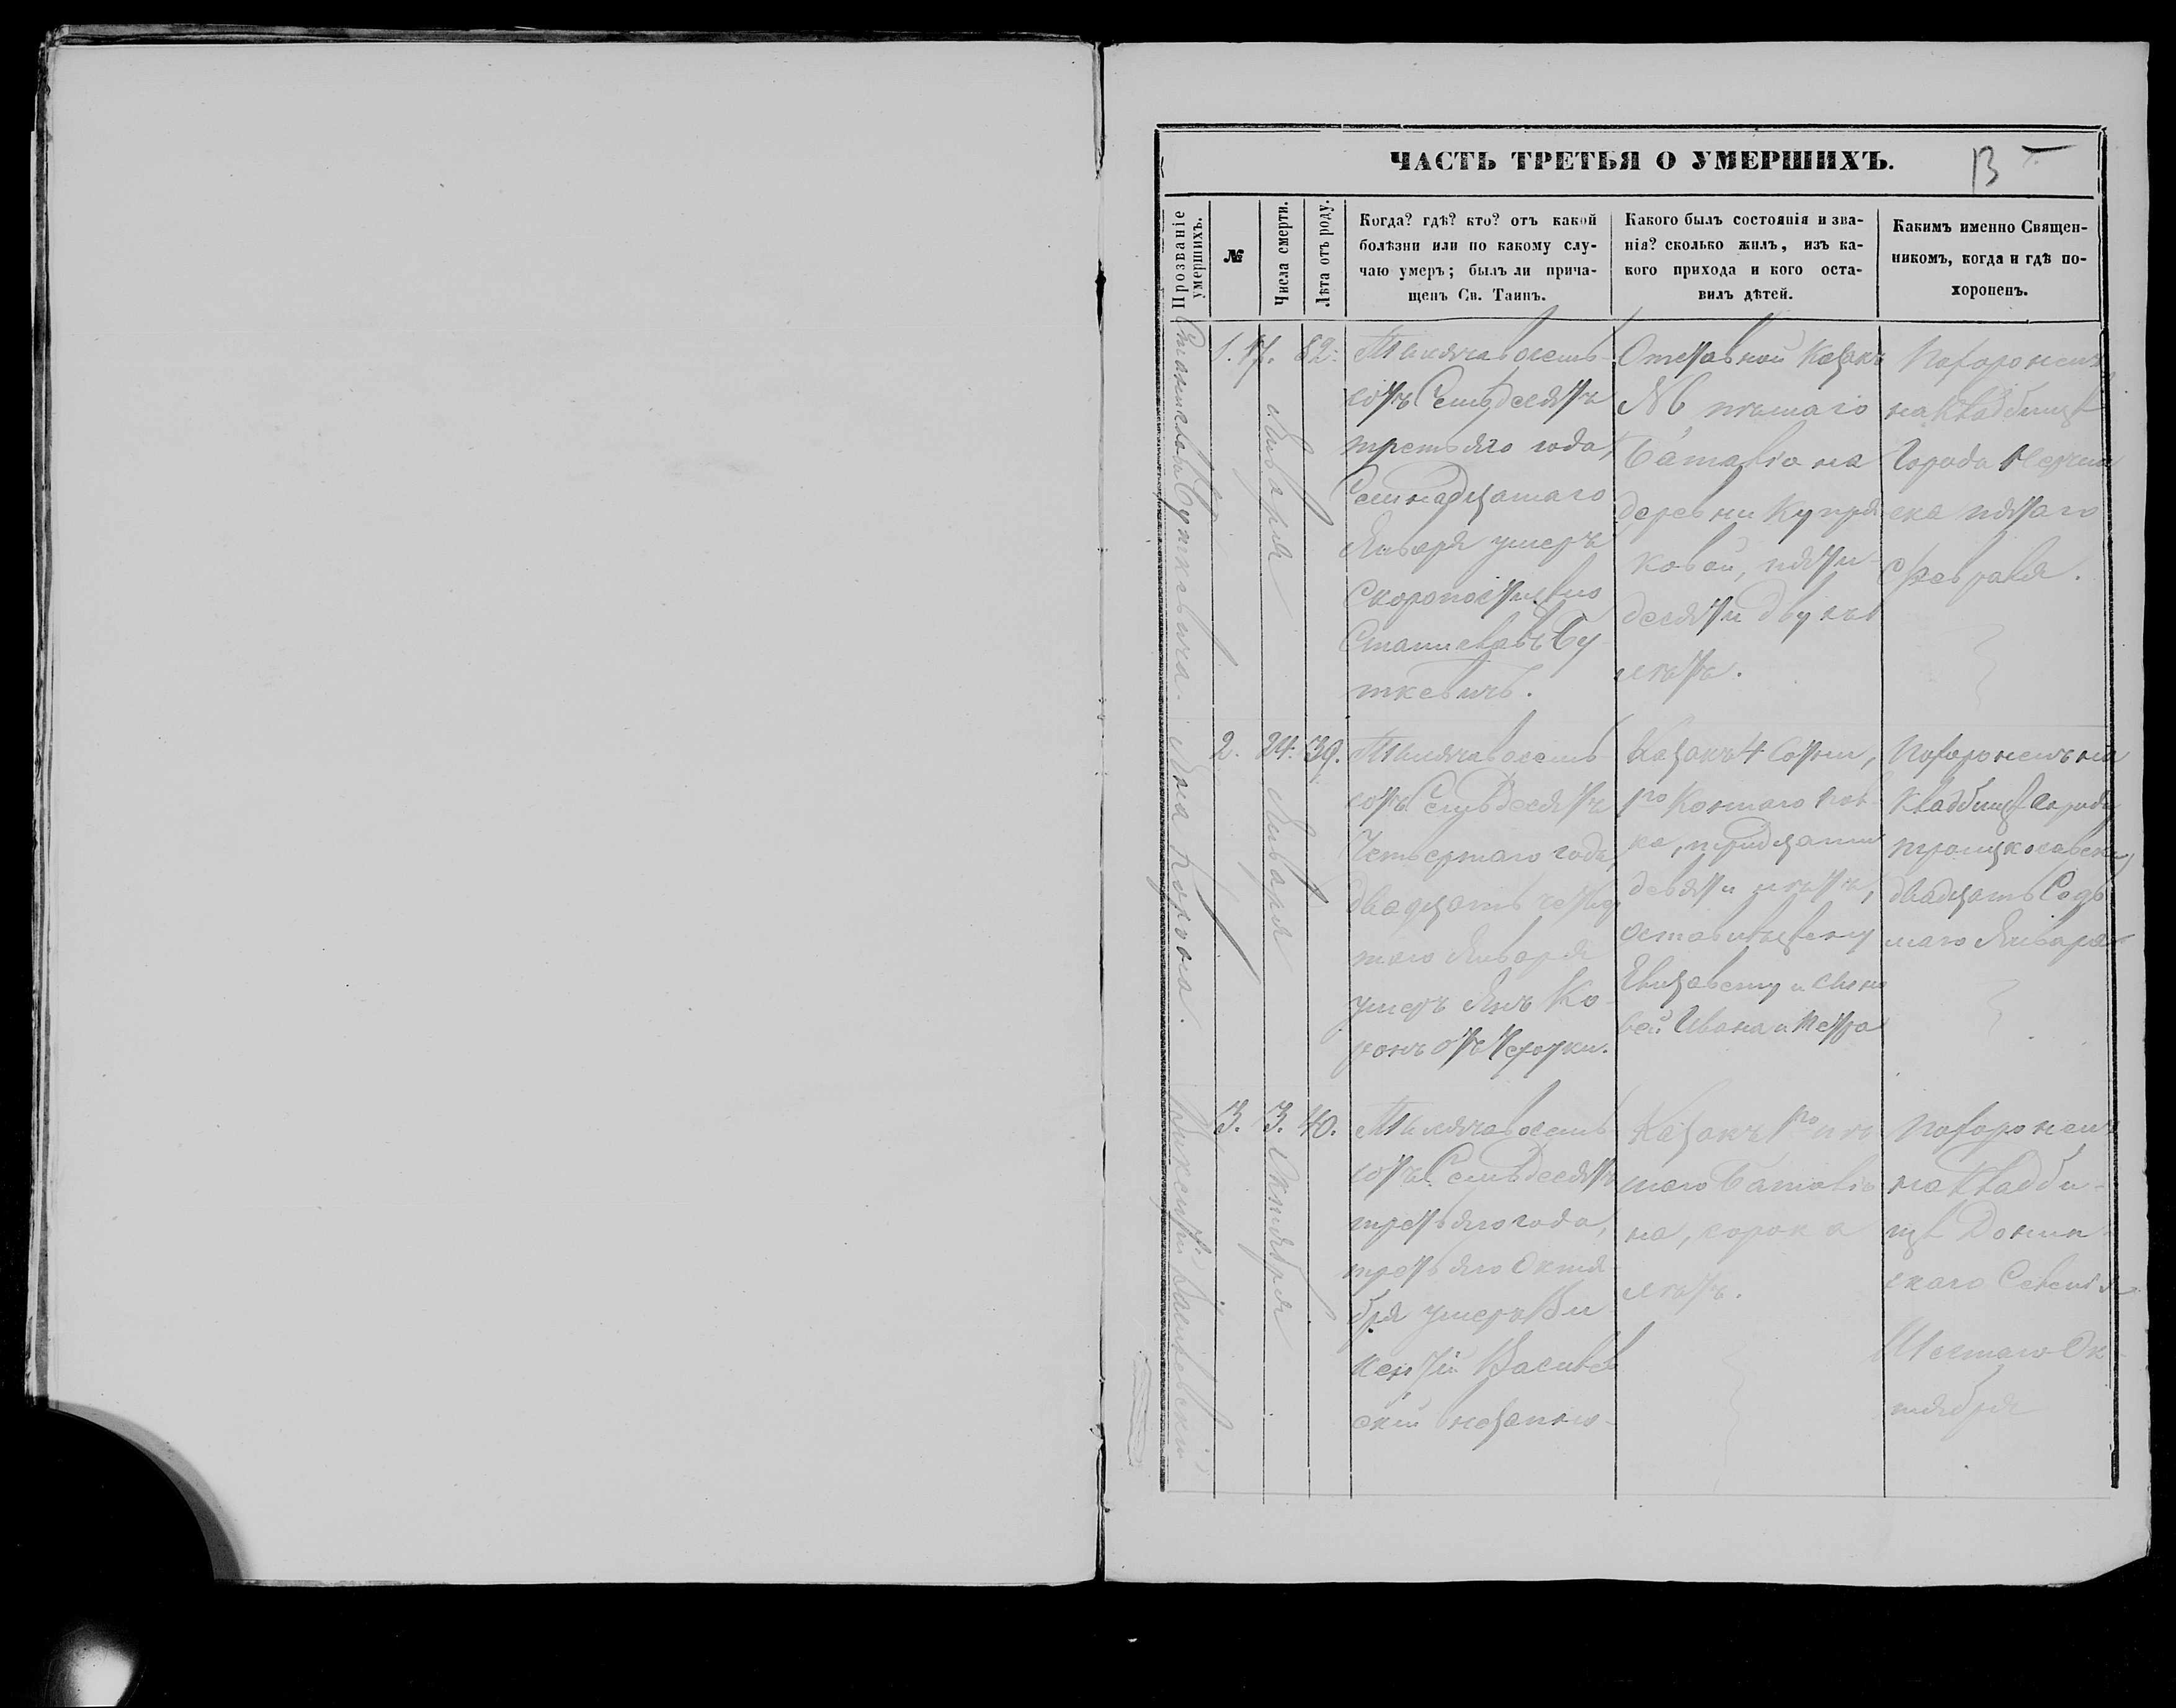 ЧАСТЬ ТРЕТЬЯ О УМЕРШИХЪ.
13
Прозваніе
умершихъ.
№
Числа смерти.
Лѣта отъ роду.
Когда? гдѣ? кто? отъ какой
болѣзни или по какому слу-
чаю умеръ; былъ ли прича-
щенъ Св. Таинъ.
Какого былъ состоянія и зва-
нія? сколько жилъ, изъ ка-
кого прихода и кого оста-
вилъ дѣтей.
Какимъ именно Священ-
никомъ, когда и гдѣ по-
хороненъ.
Станислава Буткевича.
1.
17.
Января
52.
Тысяча восемь-
сотъ Семьдесятъ
третьяго года,
Семнадцатаго
Января умеръ
Скоропостижно
Станиславъ Бу
ткевичъ.
Отставной Казакъ
№6 пѣшаго
Баталіона
деревни Купря
ковой, пяти
десяти двухъ
лѣтъ.
Похороненъ
на Кладбищѣ
Города Нерчин
ска пятаго
Февраля.
Яна Корона.
2.
24.
Января
39.
Тысяча восемь
сотъ Семьдесятъ
Четвертаго года,
двадцать четвер
таго Января
умеръ Янъ Ко
ронъ отъ Чахотки.
Казакъ 4 Сотни,
1го Коннаго пол
ка, тридцати
девяти лѣтъ,
оставилъ жену
Елизавету и сыно
вей Ивана и Петра
Похороненъ на
Кладбищѣ города
Троицкосавска,
двадцать Седь
маго Января
Викентій Василевскій
3.
3.
Октября
40.
Тысяча восемь
сотъ Семьдесятъ
третьяго года,
третьяго Октя
бря умеръ Ви
кентій Василев
скій внезапно.
Казакъ 1го пѣ
шаго Баталіо
на, сорока
лѣтъ.
Похороненъ
на Кладби-
щѣ Донин-
скаго Селенія
Шестаго Ок
тября